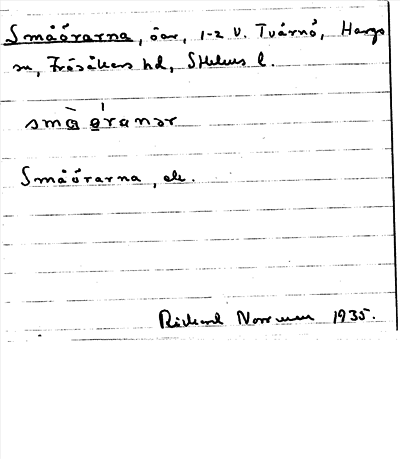 Småörarna, öar, 1-2 V. Tvärnö, Hargs
sn, Frösåkers hd, Sthlms l.
smȧ̀ øranar
Småörarna, ek.
Rickard Norrman 1935.